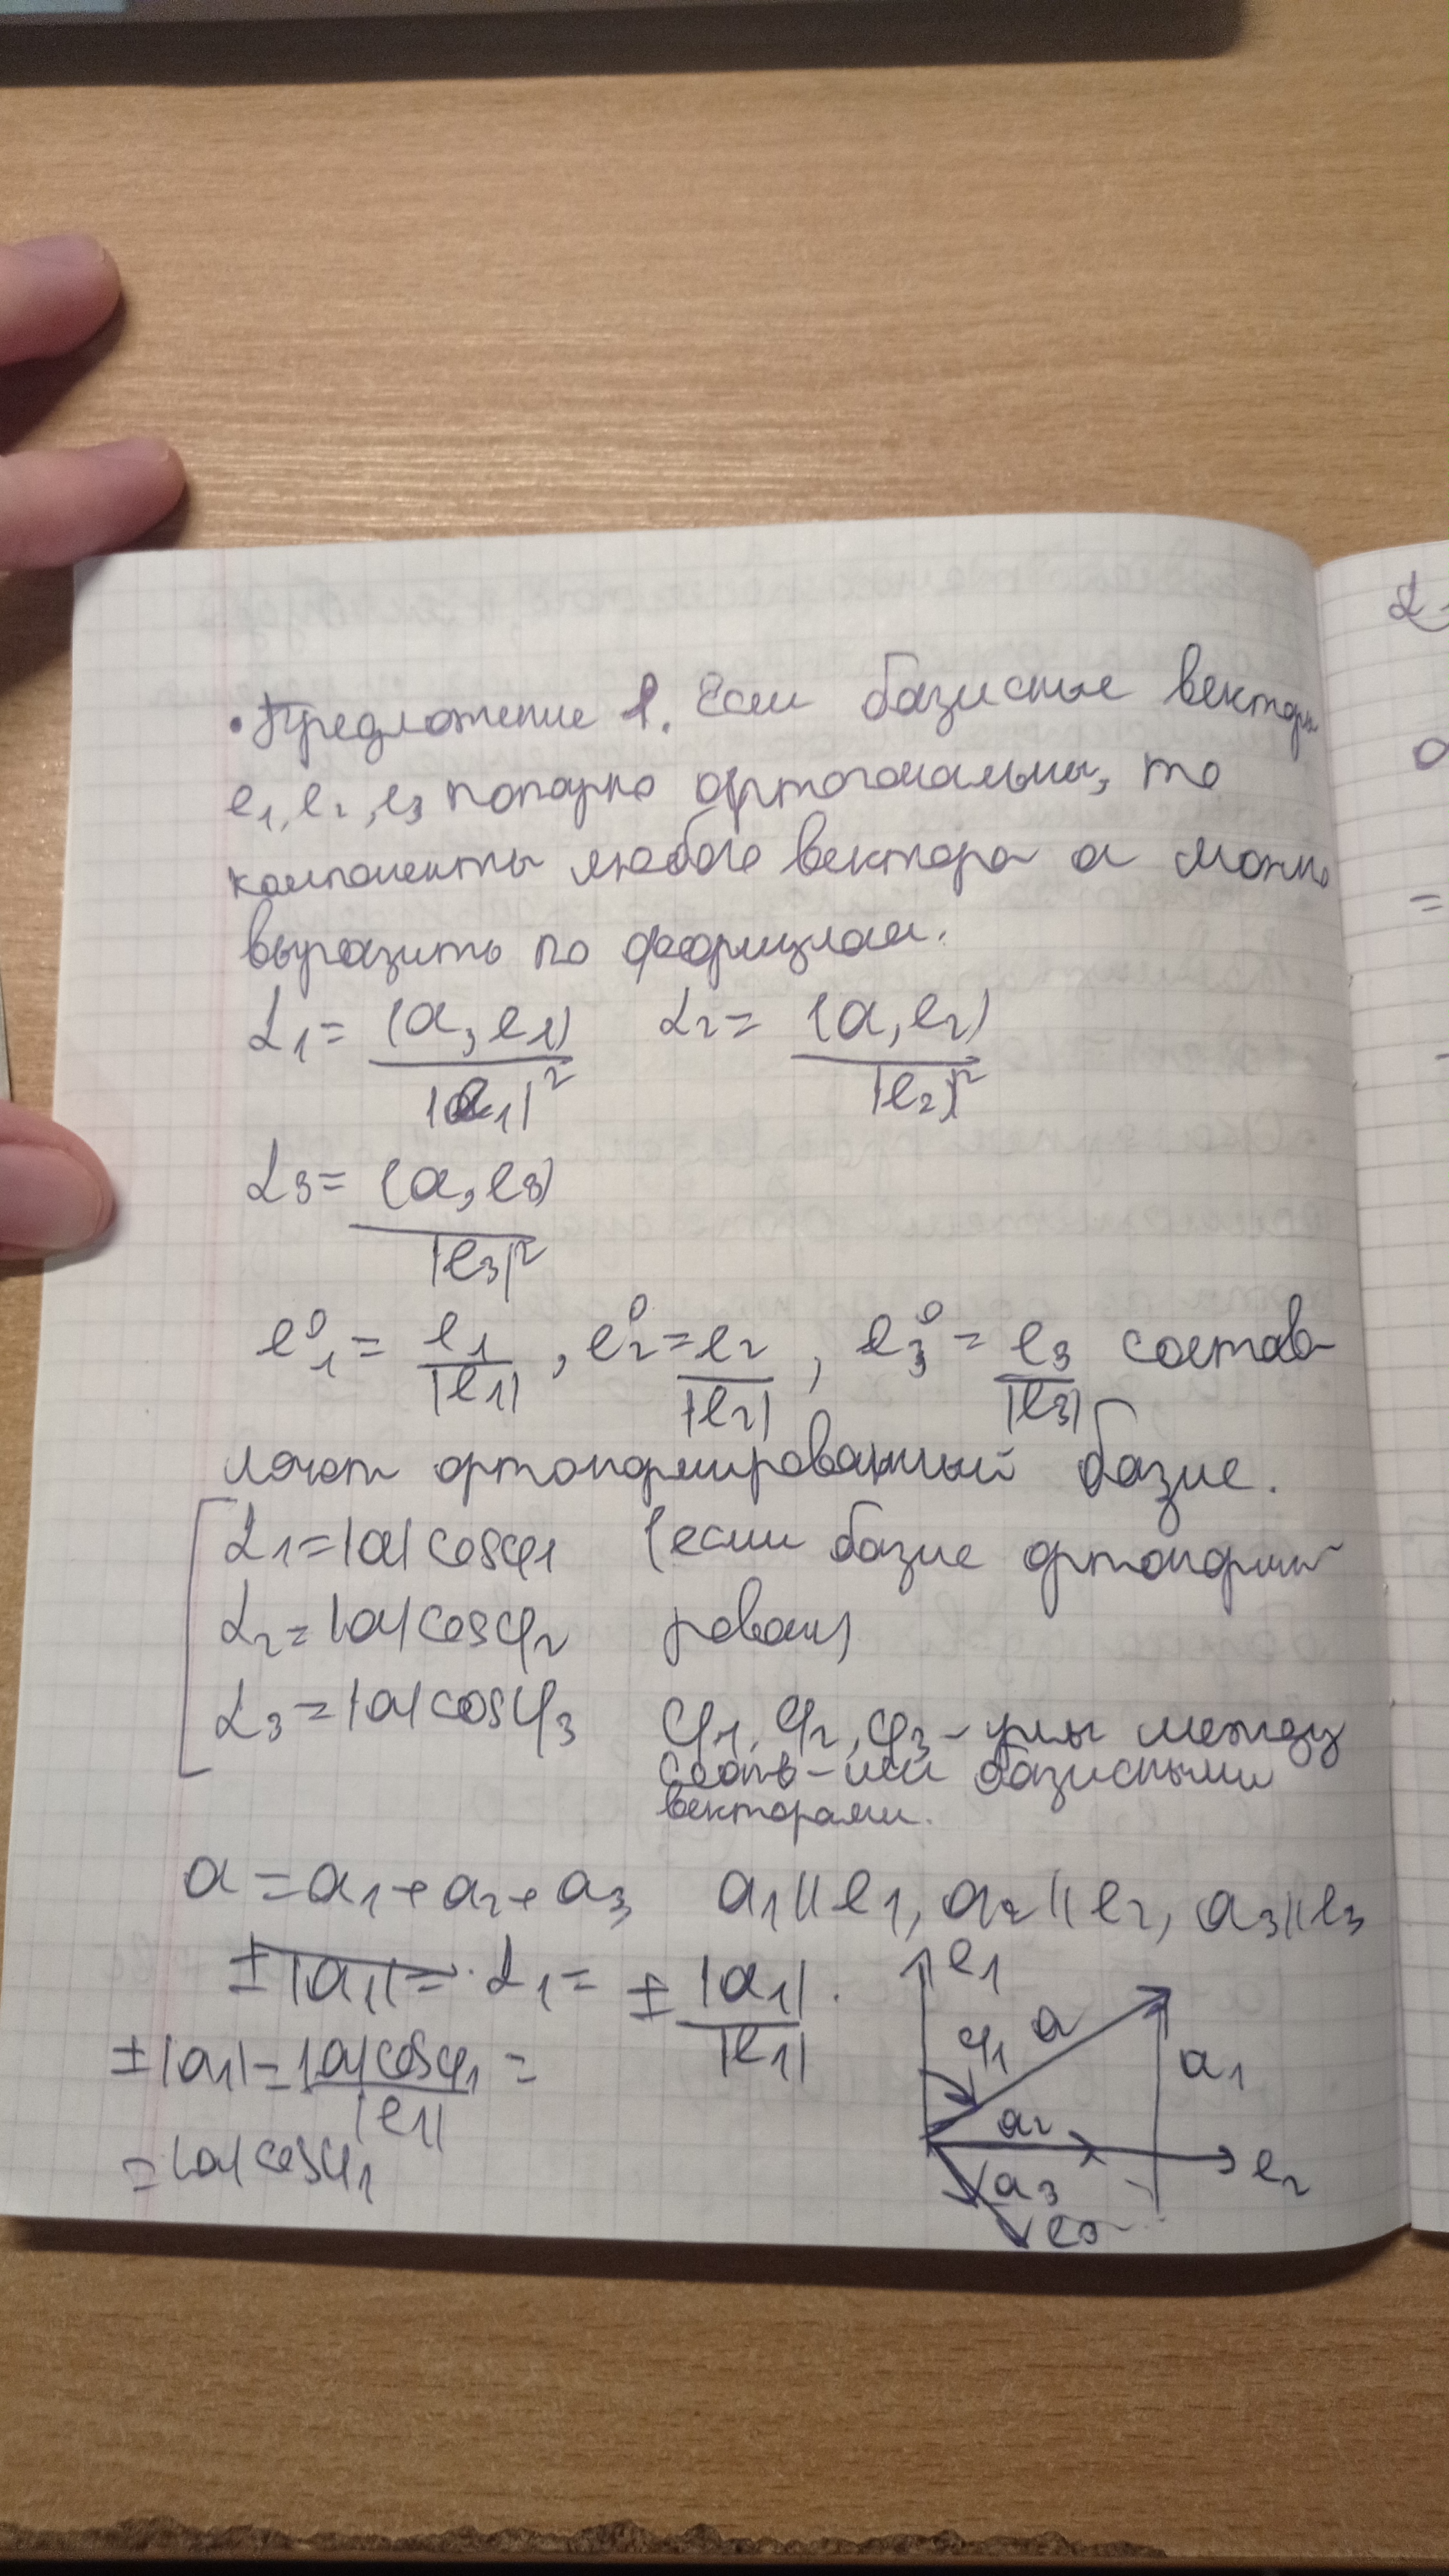 • Предложение 1. Если базисные векторы
e₁, e₂, e₃ попарно ортогональны, то
компоненты любого вектора a можно
выразить по формулам.
α₁ = (a, e₁) / |e₁|² α₂ = (a, e₂) / |e₂|²
α₃ = (a, e₃) / |e₃|²
e₁⁰ = e₁ / |e₁| , e₂⁰ = e₂ / |e₂| , e₃⁰ = e₃ / |e₃| состав
ляют ортонормированный базис.
α₁ = |a| cosφ₁ (если базис ортонорми
α₂ = |a| cosφ₂ рован)
α₃ = |a| cosφ₃ φ₁, φ₂, φ₃ – углы между
базисными
векторами.
a = a₁ + a₂ + a₃ a₁ || e₁, a₂ || e₂, a₃ || e₃
±|a₁| = α₁ = ± |a₁| / |e₁| .
±|a₁| = |a| cosφ₁ / |e₁| =
= |a| cosφ₁
e₁
φ₁ a
a₁
a₂
e₂
a₃
e₃